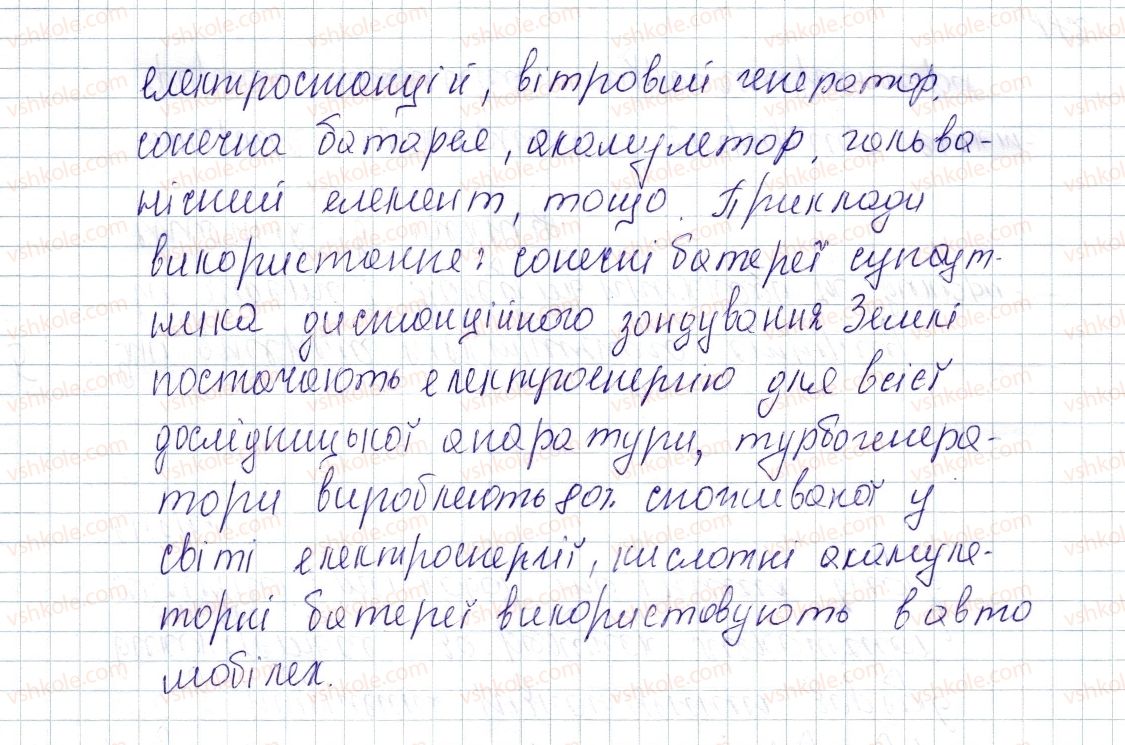 електростанцій, вітровий генератор,
сонечна батарея, акамулетор, гальва-
нічний елемент, тощо. Приклади
використання: сонечні батереї супаут-
ника дистанційного зондування Землі
постачають електроенергію для всієї
дослідницької апаратури, турбогенера-
тори виробляють 80% споживаної у
світі електроенергії, кислотні акамуле-
торні батереї використовують в авто
мобілех.